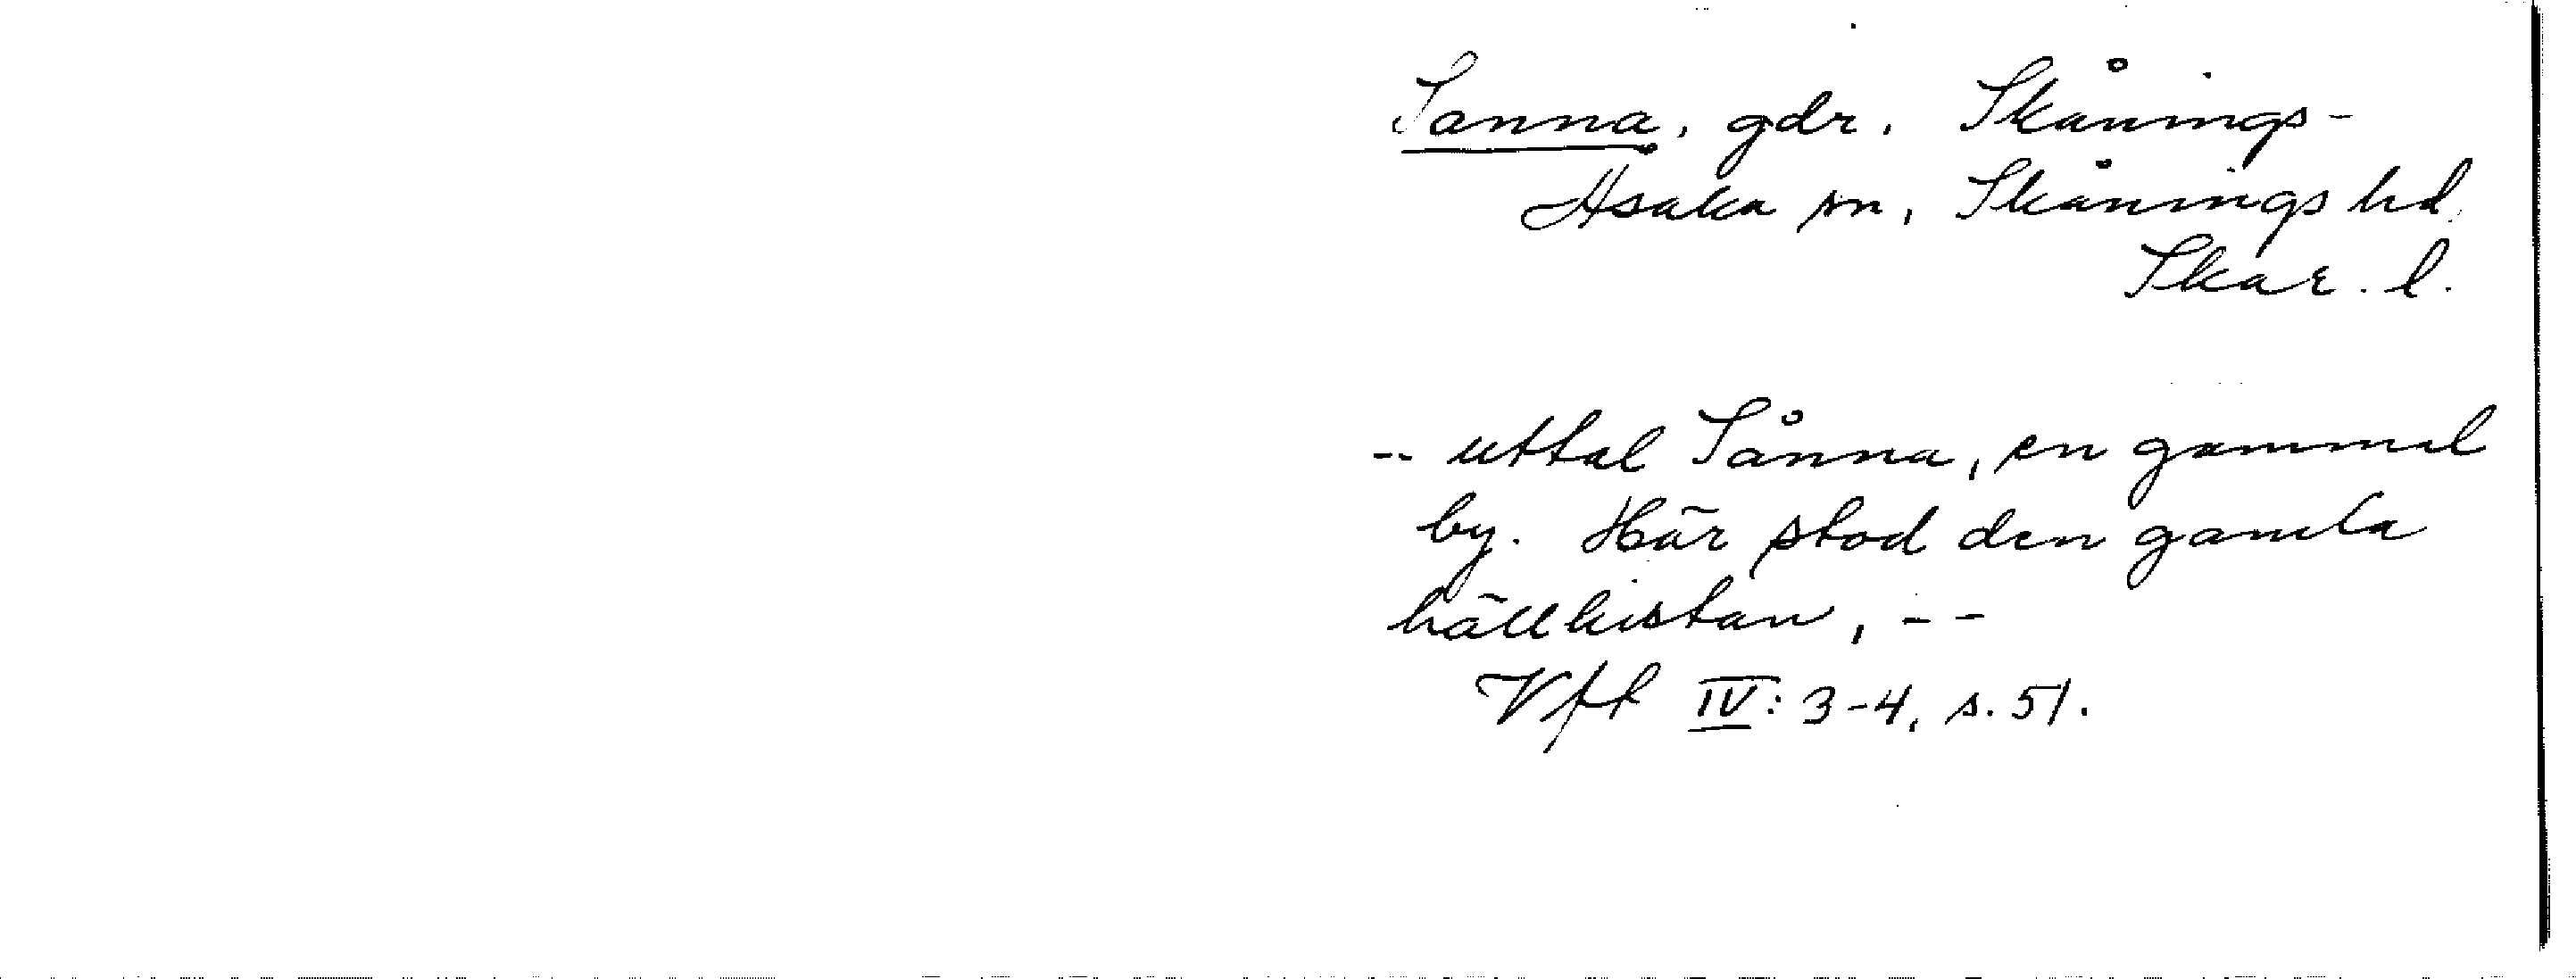 Sanna, gdr. Skånings-
Asaka sn, Skånings hd.
Skar. l.
-- uttal Sånna, en gammal
by. Här stod den gamla
hällkistan, --
Vft IV: 3-4, s. 51.